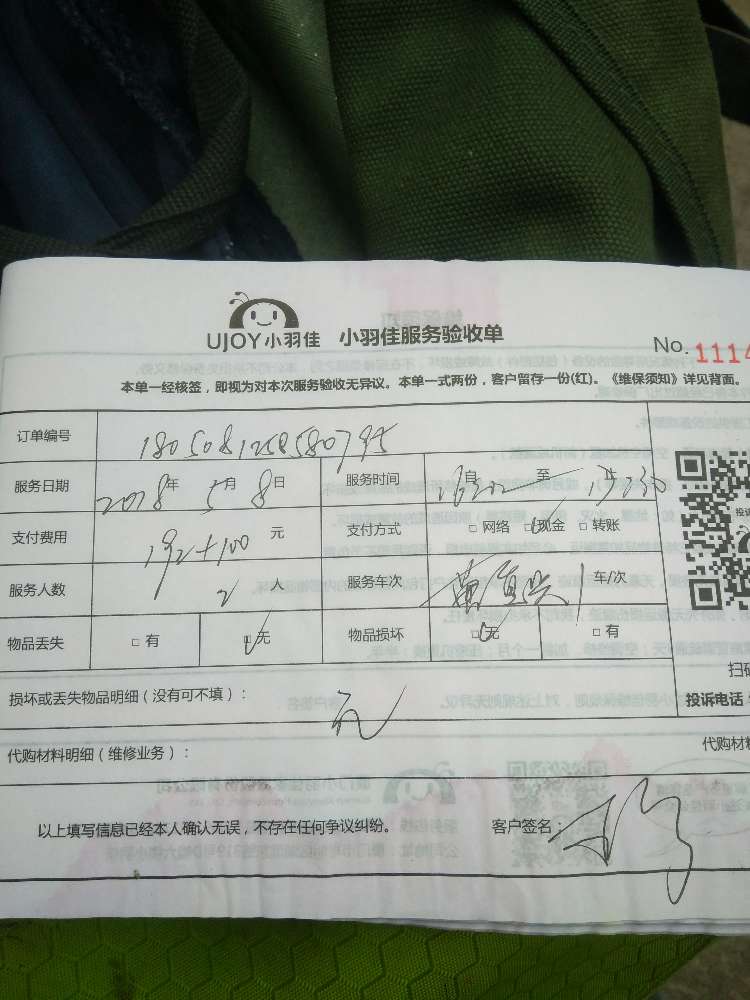 UJOY小羽佳 小羽佳服务验收单
No. 1114
本单一经核签，即视为对本次服务验收无异议。本单一式两份，客户留存一份(红)。《维保须知》详见背面。
订单编号 180508125858079
服务日期 2018年 5月 8日 服务时间 自 至 止
支付费用 192+100 元 支付方式 □ 网络 □ 现金 □ 转账
服务人数 2 人 服务车次 1 车/次
物品丢失 □ 有 □ 无 物品损坏 □ 无 □ 有
损坏或丢失物品明细（没有可不填）： 无
扫码
投诉电话
代购材料明细（维修业务）： 代购材料
以上填写信息已经本人确认无误，不存在任何争议纠纷。 客户签名：